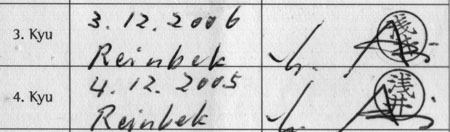 3. Kyu
3.12.2006
Reinbek
浅井
4. Kyu
4.12.2005
Reinbek
浅井